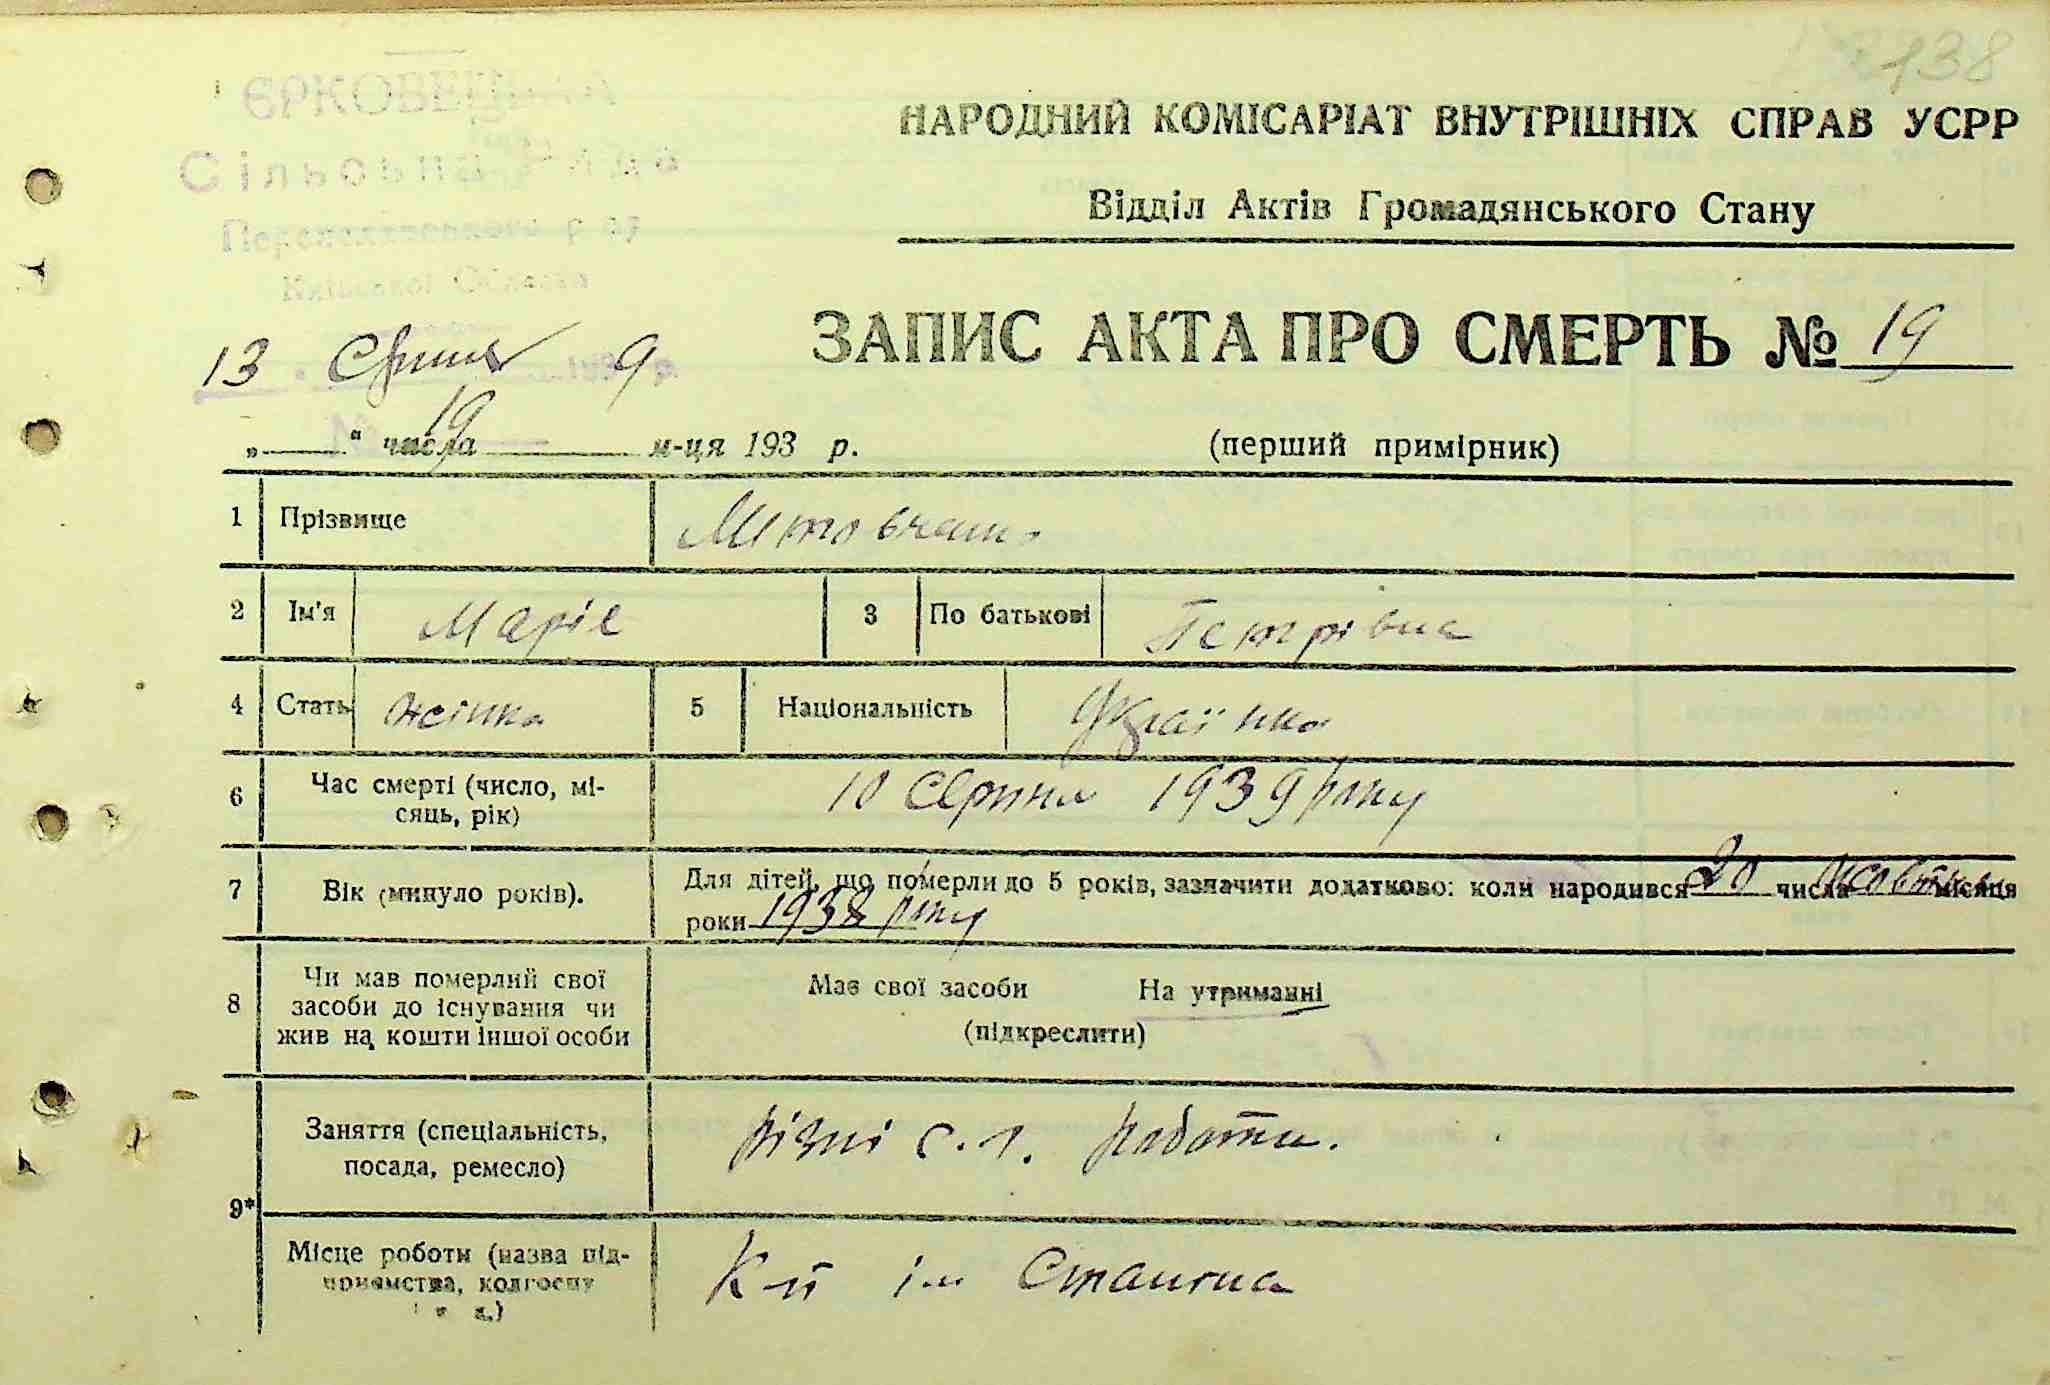 138
ЄРКОВЕЦЬКА
Сільська Рада
Переяславського р-ну
Київської Області
НАРОДНИЙ КОМІСАРІАТ ВНУТРІШНІХ СПРАВ УСРР
Відділ Актів Громадянського Стану
ЗАПИС АКТА ПРО СМЕРТЬ № 19
13 Серпня 1939 р.
№ 19
„ “ числа м-ця 193 р.
(перший примірник)
1 Прізвище
2 Ім'я Маріє 3 По батькові Петрівна
4 Стать жінка 5 Національність Українка
6 Час смерті (число, мі-
сяць, рік) 10 Серпня 1939 року
7 Вік (минуло років). Для дітей, що померли до 5 років, зазначити додатково: коли народився 20 числа жовтня місяця
роки 1938 року
8 Чи мав померлий свої
засоби до існування чи
жив на кошти іншої особи
Має свої засоби На утриманні
(підкреслити)
9* Заняття (спеціальність,
посада, ремесло) різні с.г. роботи.
Місце роботи (назва під-
приємства, колгоспу
і т. д.) К-п ім Сталіна